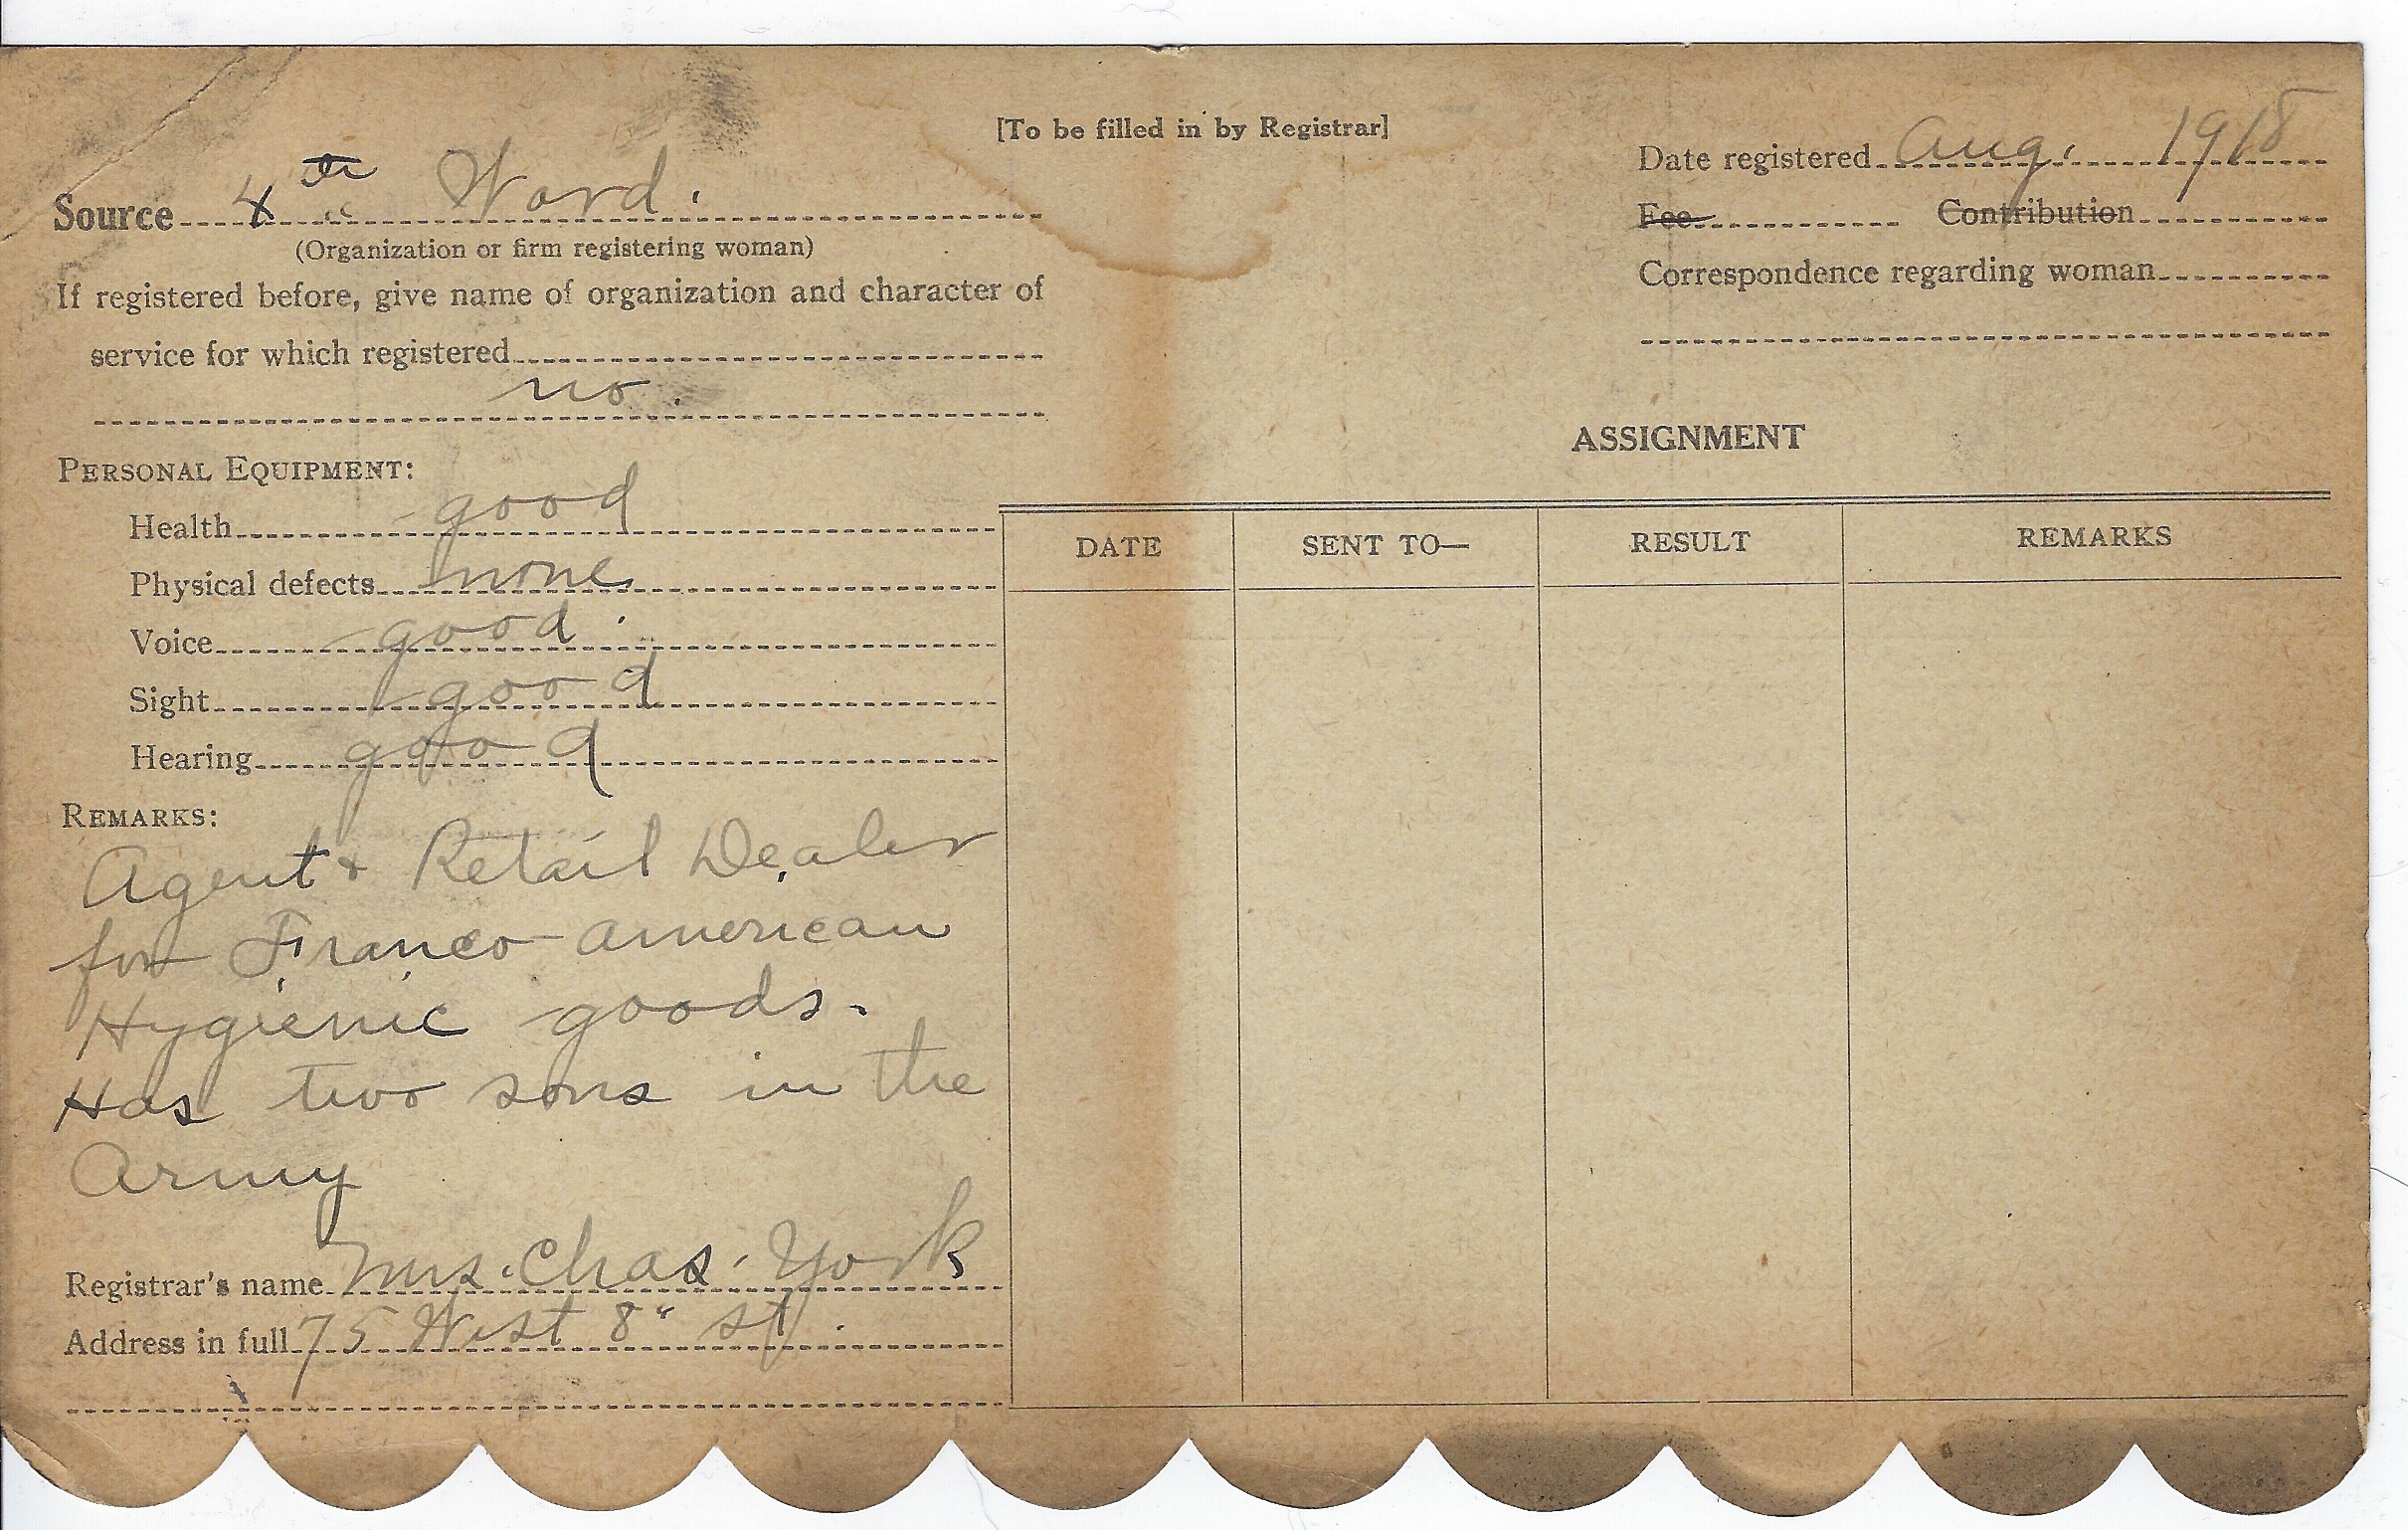 [To be filled in by Registrar]
Source 4th Ward.
(Organization or firm registering woman)
If registered before, give name of organization and character of
service for which registered
no.
PERSONAL EQUIPMENT:
Health good
Physical defects none
Voice good.
Sight good
Hearing good
REMARKS:
Agent + Retail Dealer
for Franco-American
Hygienic goods.
Has two sons in the
Army
Registrar's name Mrs. Chas. York
Address in full 75 West 8" st.
Date registered Aug. 1918
Fee Contribution
Correspondence regarding woman
ASSIGNMENT
DATE SENT TO— RESULT REMARKS